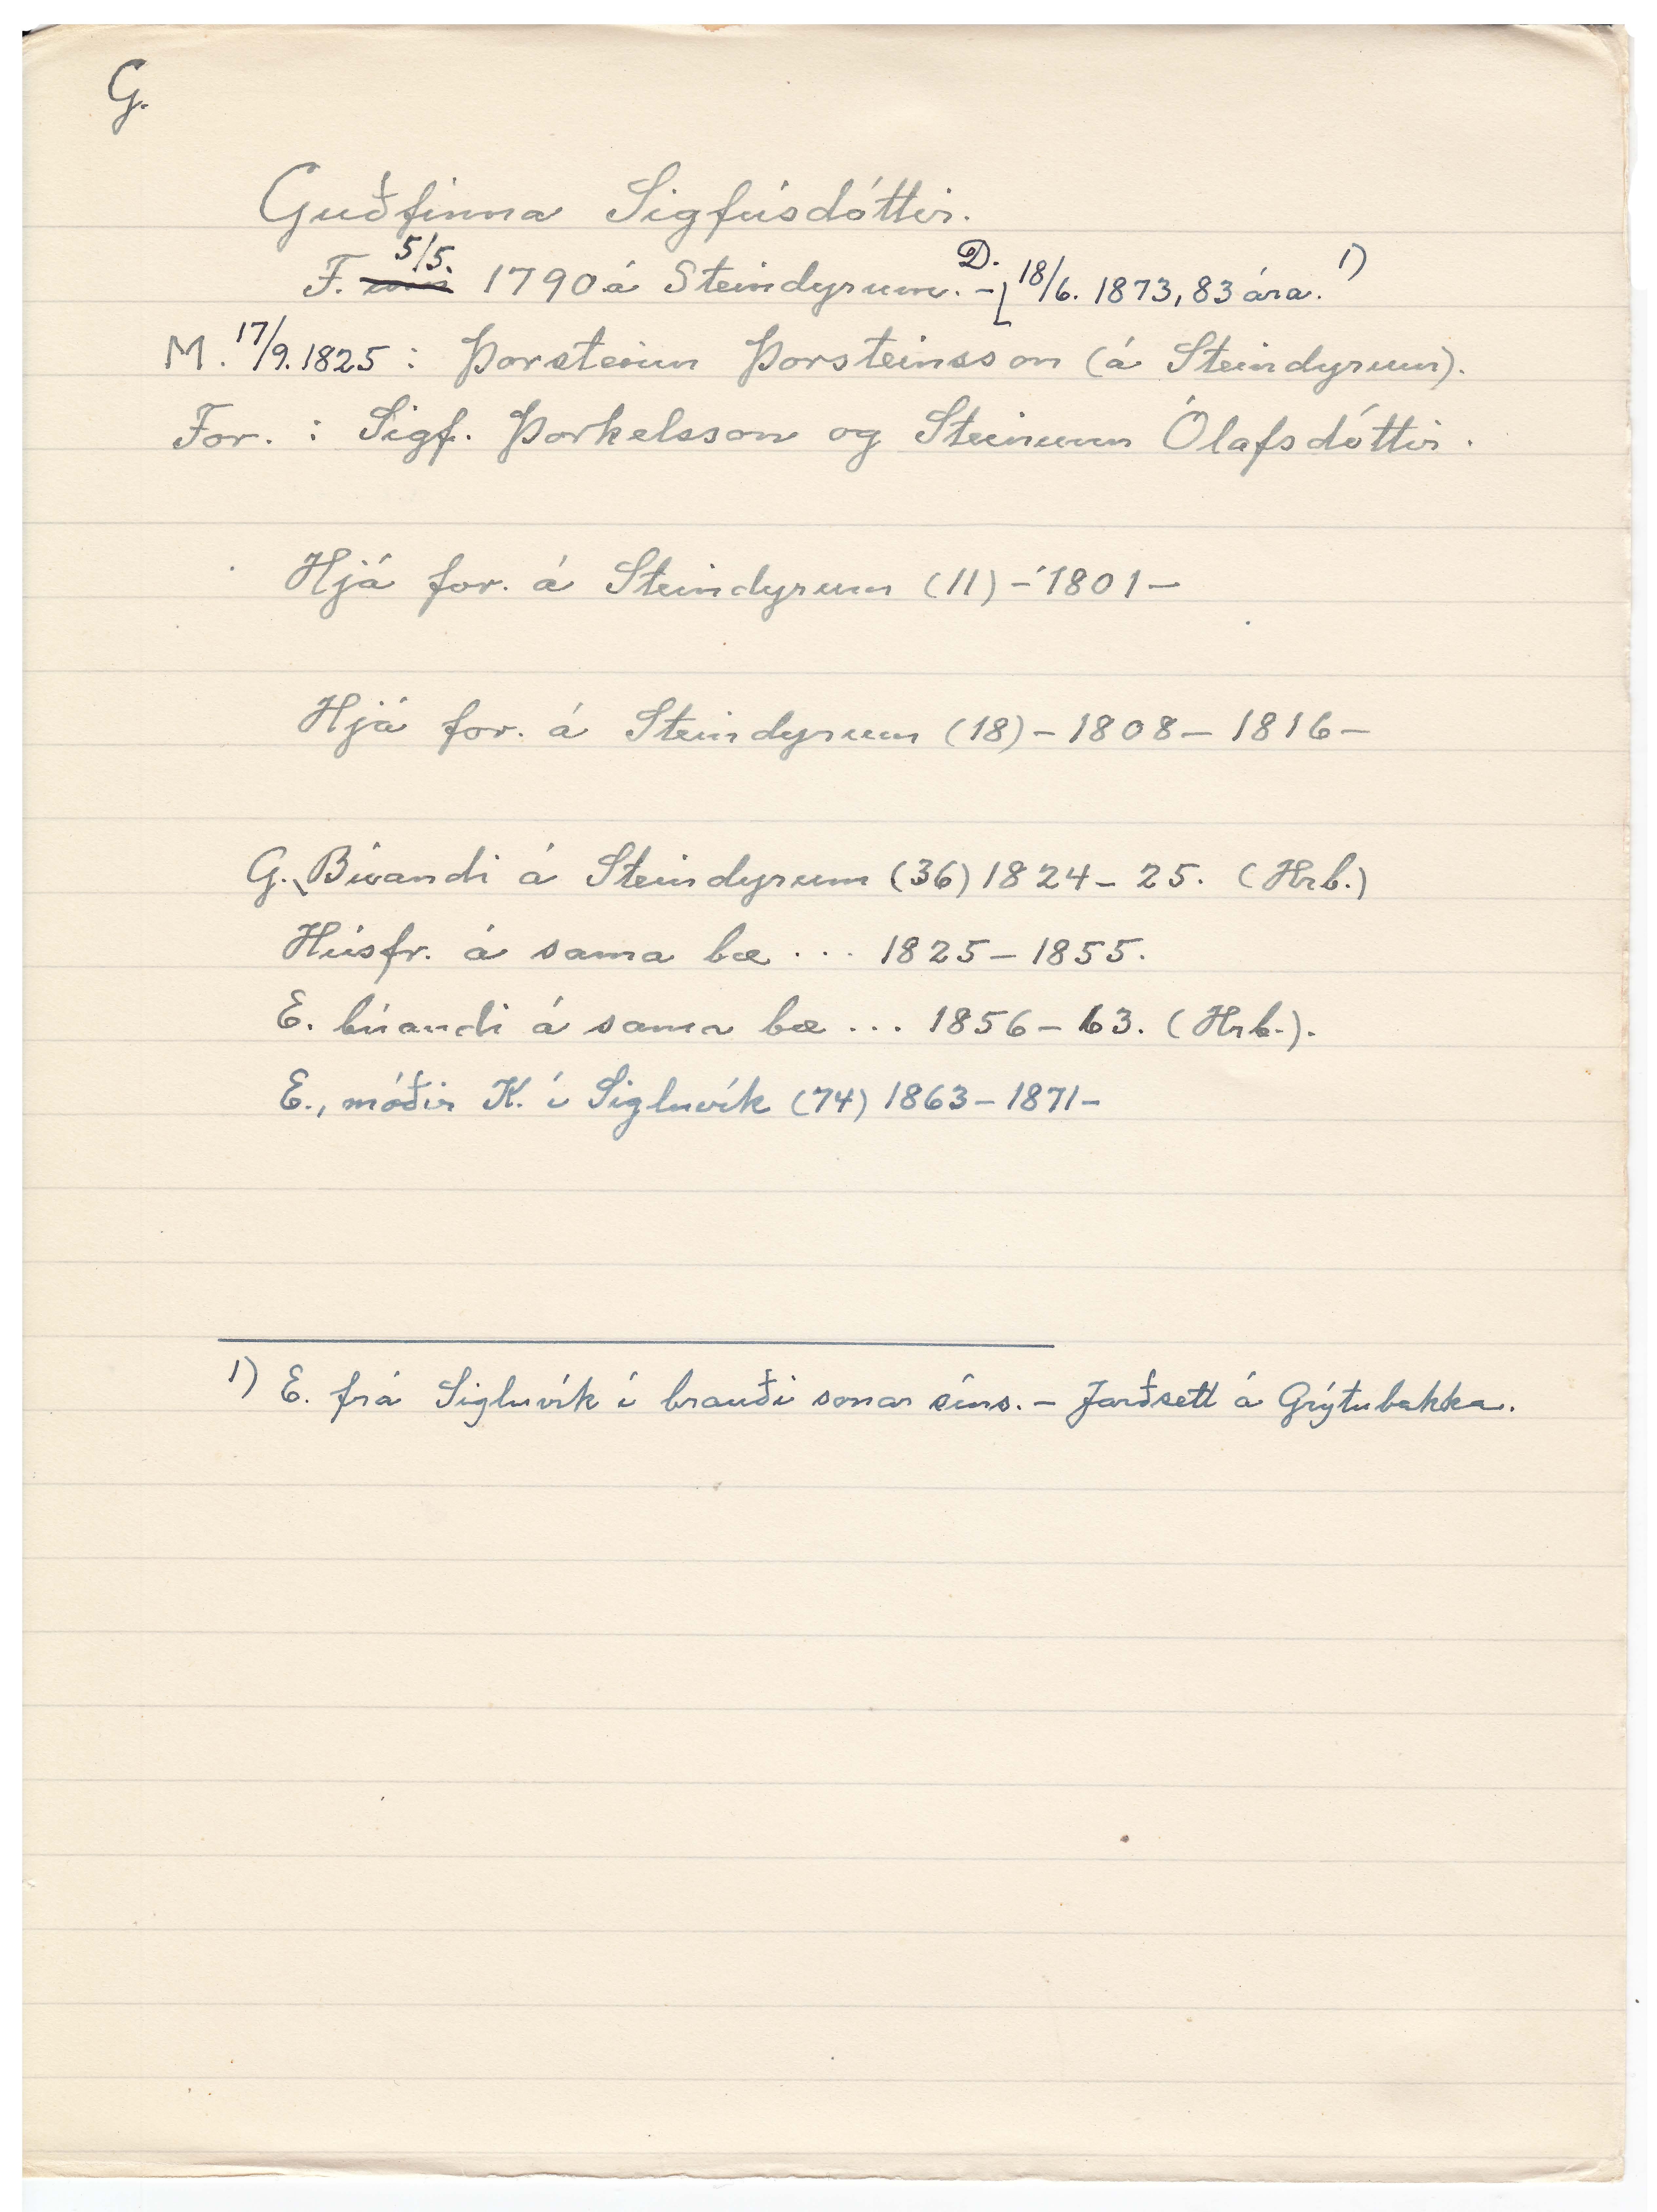 G.
Guðfinna Sigfúsdóttir.
F. 5/5. 1790 á Steindyrum. - D. 18/6. 1873, 83 ára. 1)
M. 17/9. 1825 : Þorsteinn Þorsteinsson (á Steindyrum).
For. : Sigf. Þorkelsson og Steinunn Ólafsdóttir.
Hjá for. á Steindyrum (11) - 1801 -
Hjá for. á Steindyrum (18) - 1808 - 1816 -
G. Búandi á Steindyrum (36) 1824 - 25. (Hrb.)
Húsfr. á sama bæ ... 1825 - 1855.
E. búandi á sama bæ ... 1856 - 63. (Hrb.).
E., móðir K. í Sigluvík (74) 1863 - 1871 -
1) E. frá Sigluvík í brauði sonar síns. - Jarðsett á Grýtubakka.